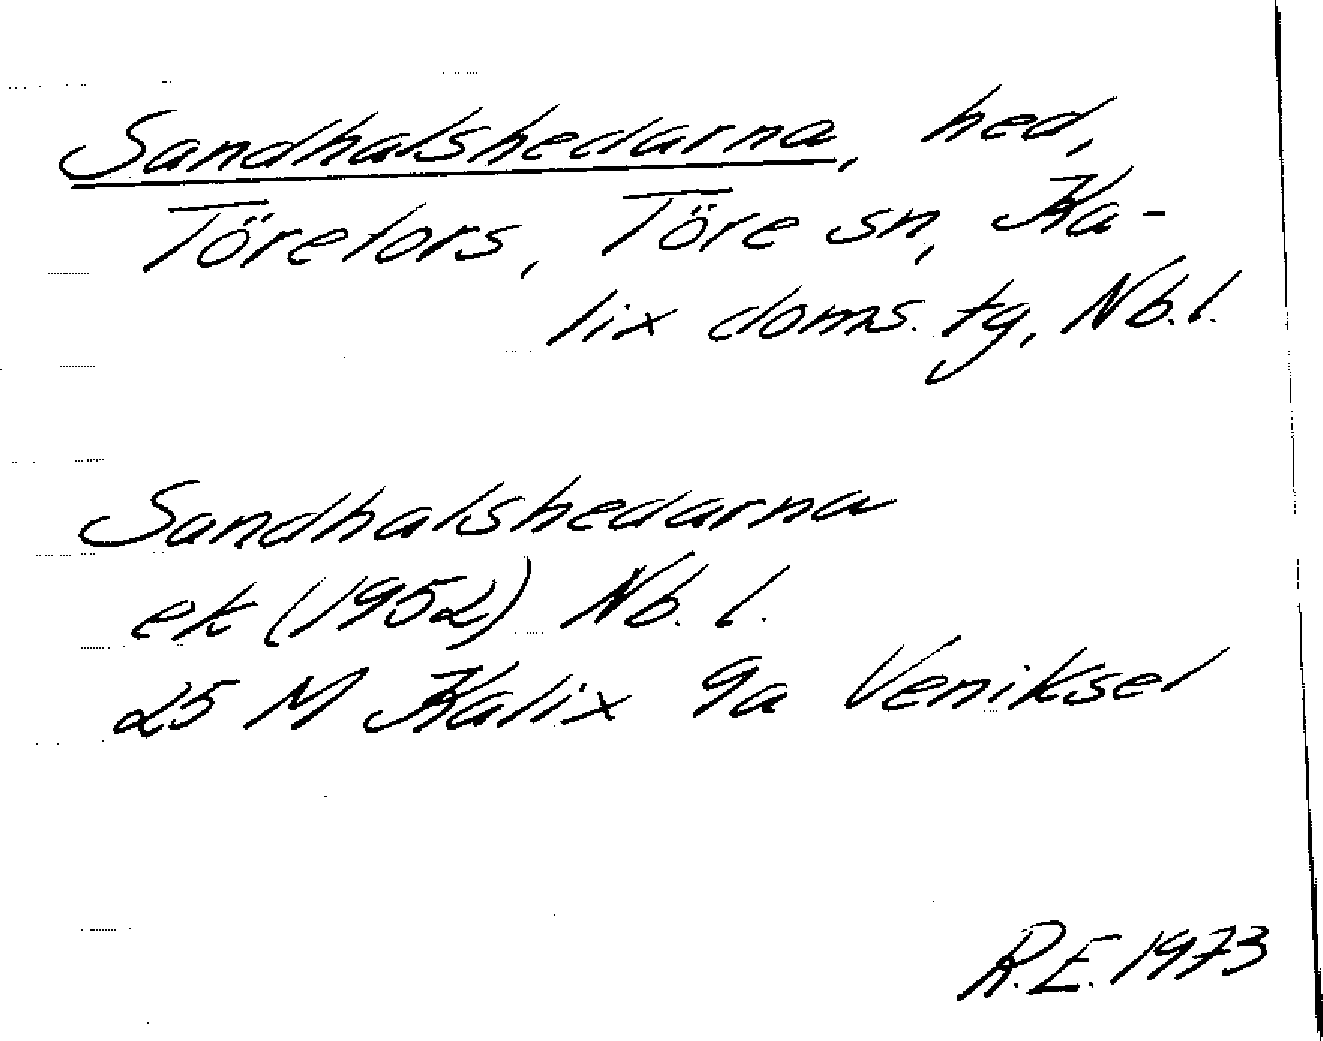 Sandhalshedarna, hed,
Törefors, Töre sn, Ka-
lix doms. tg, Nb.l.
Sandhalshedarna
ek (1952) Nb. l.
25 M Kalix 9a Veniksel
R.E. 1973